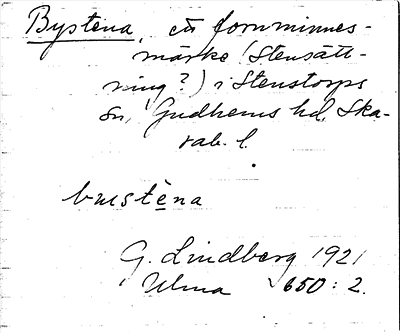 Bystena, ett fornminnes-
märke (Stensätt-
ning?) i Stenstorps
sn, Gudhems hd, Ska-
rab. l.
G. Lindberg 1921
Ulma 650:2.